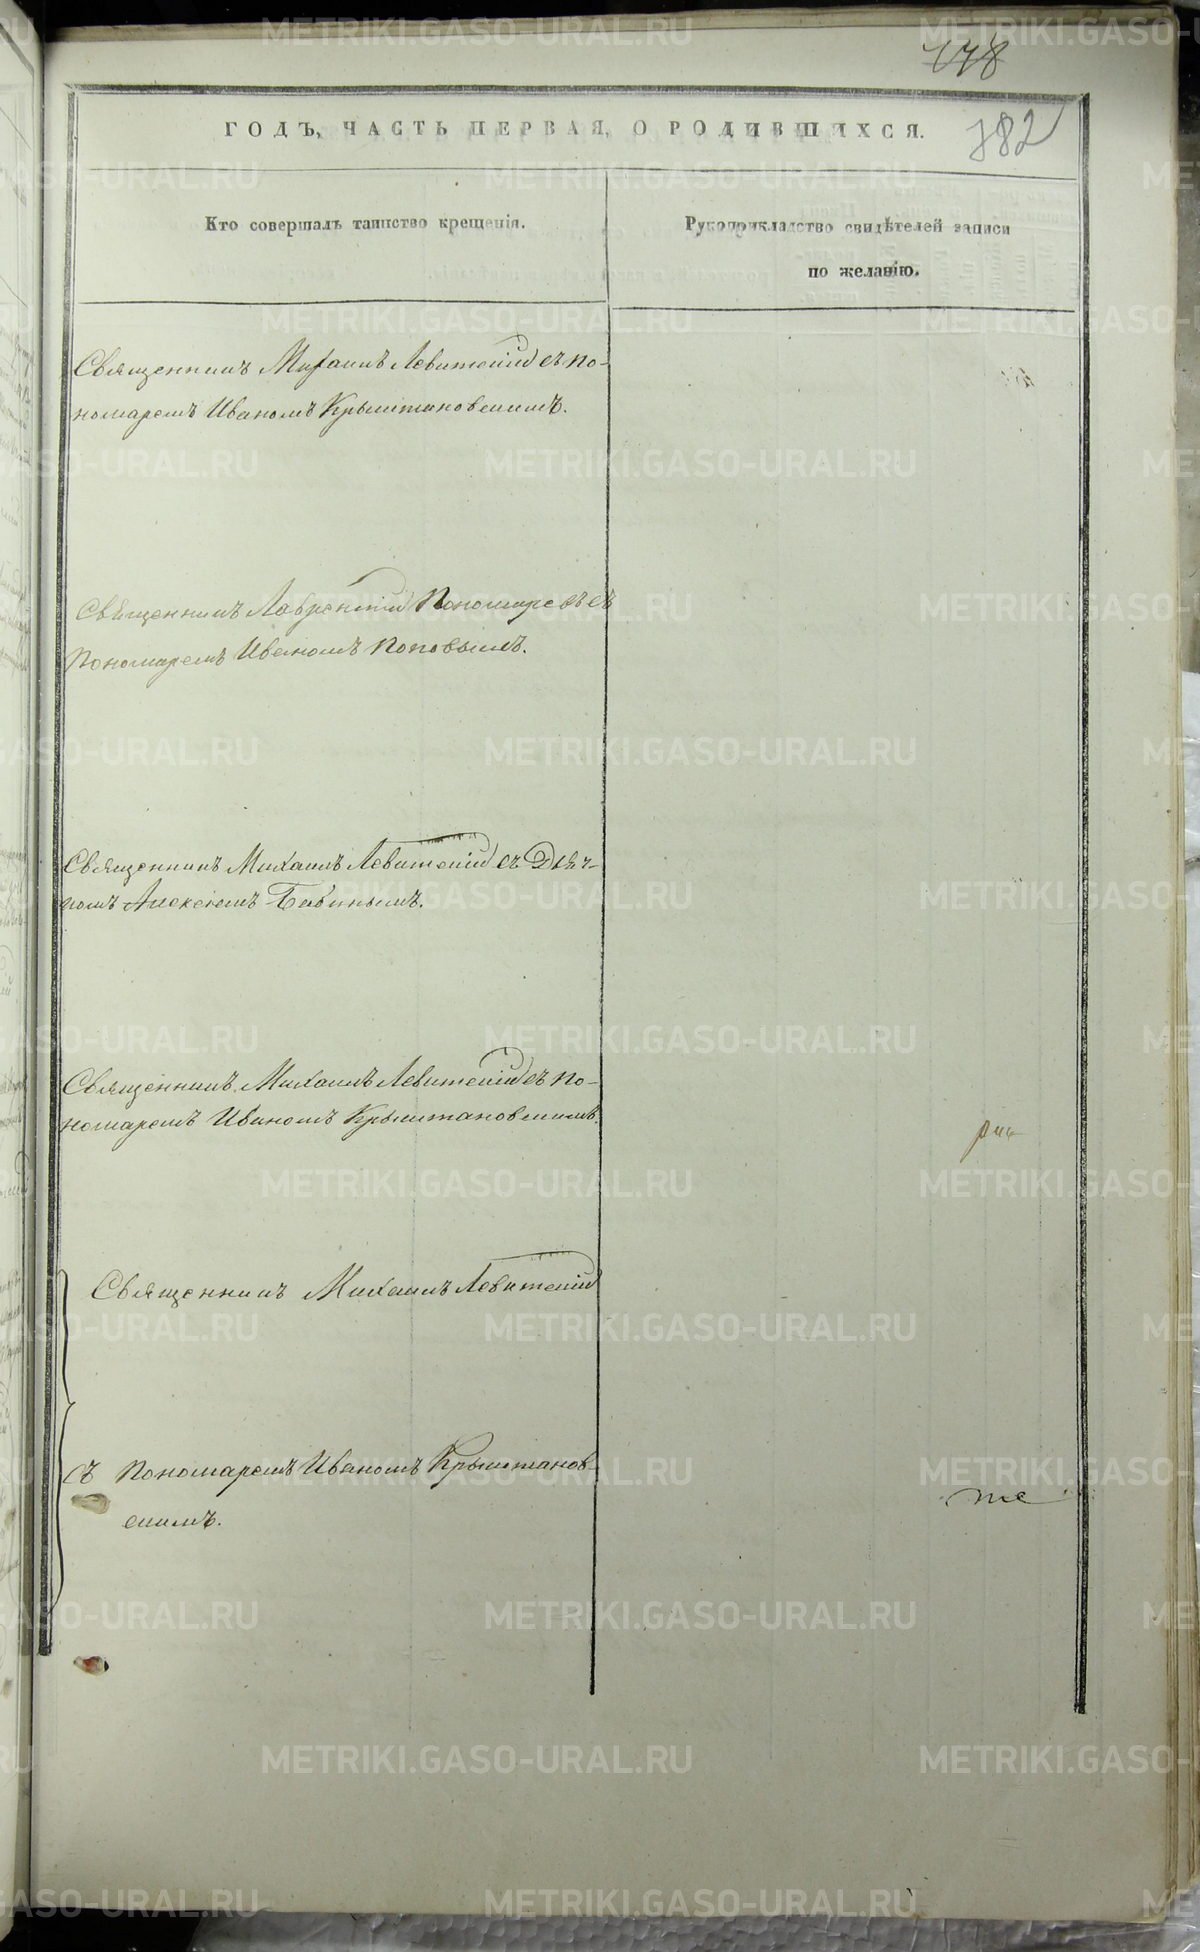 178
382
ГОДЪ, ЧАСТЬ ПЕРВАЯ, О РОДИВШИХСЯ.
Кто совершалъ таинство крещенія.
Рукоприкладство свидѣтелей записи
по желанію.
Священникъ Михаилъ Левитскій съ по-
номаремъ Иваномъ Крыштановскимъ.
Священникъ Лаврентій Пономаревъ съ
Пономаремъ Иваномъ Поповымъ.
Священникъ Михаилъ Левитскій съ Дьяч-
комъ Алексѣемъ Бабинымъ.
Священникъ Михаилъ Левитскій съ по-
номаремъ Иваномъ Крыштановскимъ.
Священникъ Михаилъ Левитскій
съ Пономаремъ Иваномъ Крыштанов-
скимъ.
METRIKI.GASO-URAL.RU